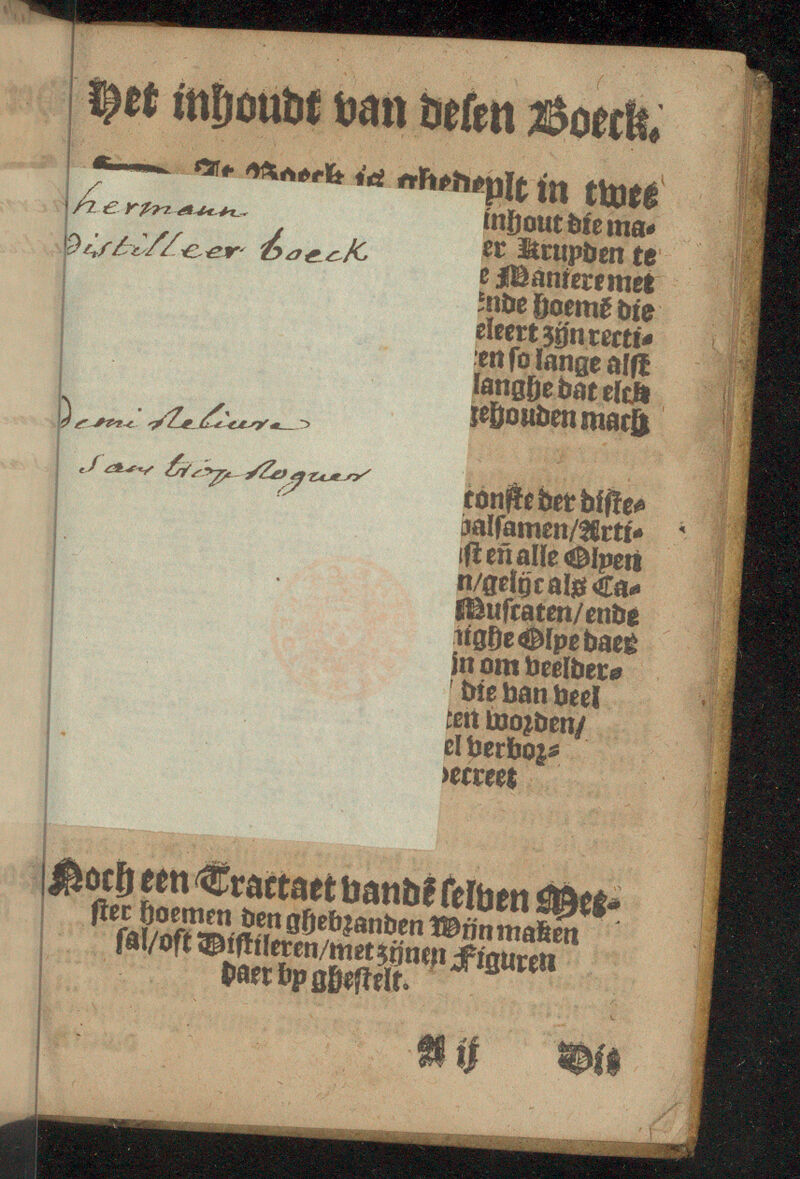 Het inhoudt van desen Boeck.
At Boeck is ghedeylt in twee
inhout die ma⸗
er Kruyden te
e Maniere met
Ende hoemẽ die
eleert zijn recti⸗
en so lange alst
langhe dat elck
gehouden mach
conste der diste⸗
balsamen/Arti⸗
ist eñ alle Olyen
n/gelijc als Ca⸗
Muscaten/ende
nighe Olye daer
jn om veelder⸗
die van veel
ten worden/
el verbor⸗
ecreet
hermann
Distilleer boeck
Demi Reliure
Sans trop Rogner
Noch een Tractaet vandẽ selven Mee⸗
ster hoemen den ghebranden Wijn maken
sal/oft Distileren/met zijnen Figuren
daer by ghestelt.
A ij Dit